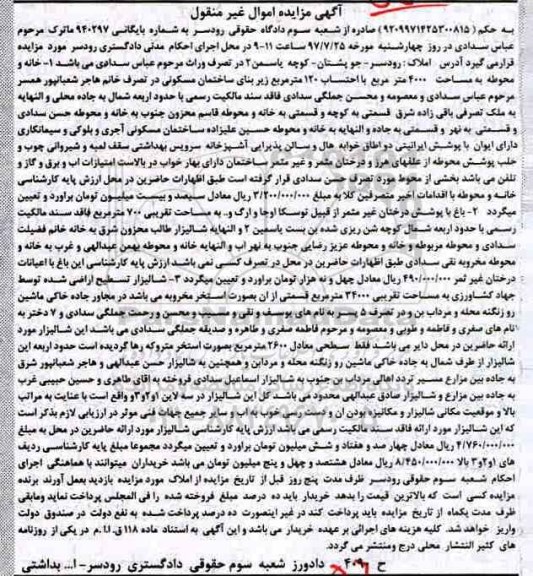 آگهی مزایده اموال غیر منقول
به حکم (۹۲۰۹۹۷۱۴۲۵۳۰۰۸۱۵) صادره از شعبه سوم دادگاه حقوقی رودسر به شماره بایگانی ۹۴۰۲۹۷ ماترک مرحوم
عباس سدادی در روز چهارشنبه مورخه ۹۷/۷/۲۵ ساعت ۱۱-۹ در محل اجرای احکام مدنی دادگستری رودسر مورد مزایده
قرارمی گیرد آدرس املاک : رودسر- جو پشتان - کوچه یاسمن۲ در تصرف وراث مرحوم عباس سدادی می باشد ۱- خانه و
محوطه به مساحت ۴۰۰۰ متر مربع با احتساب ۱۲۰ مترمربع زیر بنای ساختمان مسکونی در تصرف خانم هاجر شعبانپور همسر
مرحوم عباس سدادی و معصومه و محسن جملگی سدادی فاقد سند مالکیت رسمی با حدود اربعه شمال به جاده محلی و النهایه
به ملک تصرفی باقی زاده شرق قسمتی به کوچه و قسمتی به خانه و محوطه قاسم محزون جنوب به خانه و محوطه حسن سدادی
و قسمتی به نهر و قسمتی به جاده و النهایه به خانه و محوطه حسین علیزاده ساختمان مسکونی آجری و بلوکی و سیمانکاری
دارای ایوان با پوشش ایرانیتی دو اطاق خوابه هال و سالن پذیرایی آشپزخانه سرویس بهداشتی سقف لمبه و شیروانی چوب و
حلب پوشش محوطه از علفهای هرز و درختان مثمر و غیر مثمر ساختمان دارای بهار خواب در بالاست امتیازات آب و برق و گاز و
تلفن می باشد بخشی از محوطه مورد تصرف حسن سدادی قرار گرفته است طبق اظهارات حاضرین در محل ارزش پایه کارشناسی
خانه و محوطه با اقدامات اخیر متصرفین کلا به مبلغ ۳/۲۰۰/۰۰۰/۰۰۰ ریال معادل سیصد و بیست میلیون تومان براورد و تعیین
میگردد ۲- باغ با پوشش درختان غیر مثمر از قبیل توسکا اوجا و ارگ و.. به مساحت تقریبی ۷۰۰ مترمربع فاقد سند مالکیت
رسمی با حدود اربعه شمال کوچه شن ریزی شده بن بست یاسمین ۲ و النهایه شالیزار طالب محزون شرق به خانه خانم فضیلت
سدادی و محوطه مربوطه و خانه و محوطه عزیز رضایی جنوب به نهر آب و النهایه خانه و محوطه بهمن عبدالهی و غرب به خانه و
محوطه مخروبه نقی سدادی طبق اظهارات حاضرین در محل در تصرف کسی نمی باشد ارزش پایه کارشناسی این باغ با اعیانات
درختان غیر ثمر ۴۹۰/۰۰۰/۰۰۰ ریال معادل چهل و نه هزار تومان براورد و تعیین میگردد ۳- شالیزار تسطیح اراضی شده توسط
جهاد کشاورزی به مساحت تقریبی ۳۴۰۰۰ مترمربع قسمتی از آن بصورت استخر مخروبه می باشد در مجاور جاده خاکی ماشین
رو زنگنه محله و مرداب بن و در تصرف ۵ پسر به نام های یوسف و تقی و و محسن و حسن جملگی سدادی و ۷ دختر به
نام های صغری و فاطمه و طوبی و معصومه و مرحوم فاطمه صغری و طاهره و صدیقه جملگی سدادی می باشد این شالیزار مورد
ارائه حاضرین در محل دایر می باشد فقط سطحی معادل ۲۶۰۰ مترمربع بصورت استخر متروکه رها گردیده است حدود اربعه این
شالیزار از طرف شمال به جاده خاکی ماشین رو زنگنه محله و مردابن و همچنین به شالیزار حسن عبدالهی و هاجر شعبانپور شرق
به جاده بین مزارع مسیر تردد اهالی مرداب بن جنوب به شالیزار اسماعیل سدادی فروخته به آقای طاهری و حسین حبیبی غرب
به جاده بین مزارع و شالیزار صادق عبدالهی محدود می باشد کل این شالیزار در سه لاین ۱و۲و۳ واقع است با عنایت به مراتب
بالا و موقعیت مکانی شالیزار و مکانیزه بودن آن و دسترسی خوب به آب و سایر جمیع جهات فنی موثر در ارزیابی لازم بذکر است
که این شالیزار مورد ارائه فاقد سند مالکیت رسمی می باشد ارزش پایه کارشناسی شالیزار مورد ارائه حاضرین در محل به مبلغ
۴/۷۶۰/۰۰۰/۰۰۰ ریال معادل چهار صد و هفتاد و شش میلیون تومان براورد و تعیین میگردد مجموعا مبلغ پایه کارشناسی ردیف
های ۱و۲و۳ بالا ۸/۴۵۰/۰۰۰/۰۰۰ ریال معادل هشتصد و چهل و پنج میلیون تومان می باشد خریداران میتوانند با هماهنگی اجرای
احکام شعبه سوم حقوقی رودسر ظرف مدت پنج روز قبل از تاریخ مزایده از املاک مورد مزایده بازدید بعمل آورند برنده
مزایده کسی است که بالاترین قیمت را بدهد خریدار باید ده درصد مبلغ فروخته شده را فی المجلس پرداخت نماید ومابقی
ظرف مدت یکماه از تاریخ مزایده باید پرداخت کند در غیر اینصورت ده درصد پرداخت شده به نفع دولت در صندوق دولت
واریز خواهد شد. کلیه هزینه های اجرائی بر عهده خریدار می باشد و این آگهی به استناد ماده ۱۱۸ ق.ا.م در یکی از روزنامه
های کثیر الانتشار محلی درج ومنتشر می گردد.
ح ۴۰۹ دادورز شعبه سوم حقوقی دادگستری رودسر-ا... بداشتی